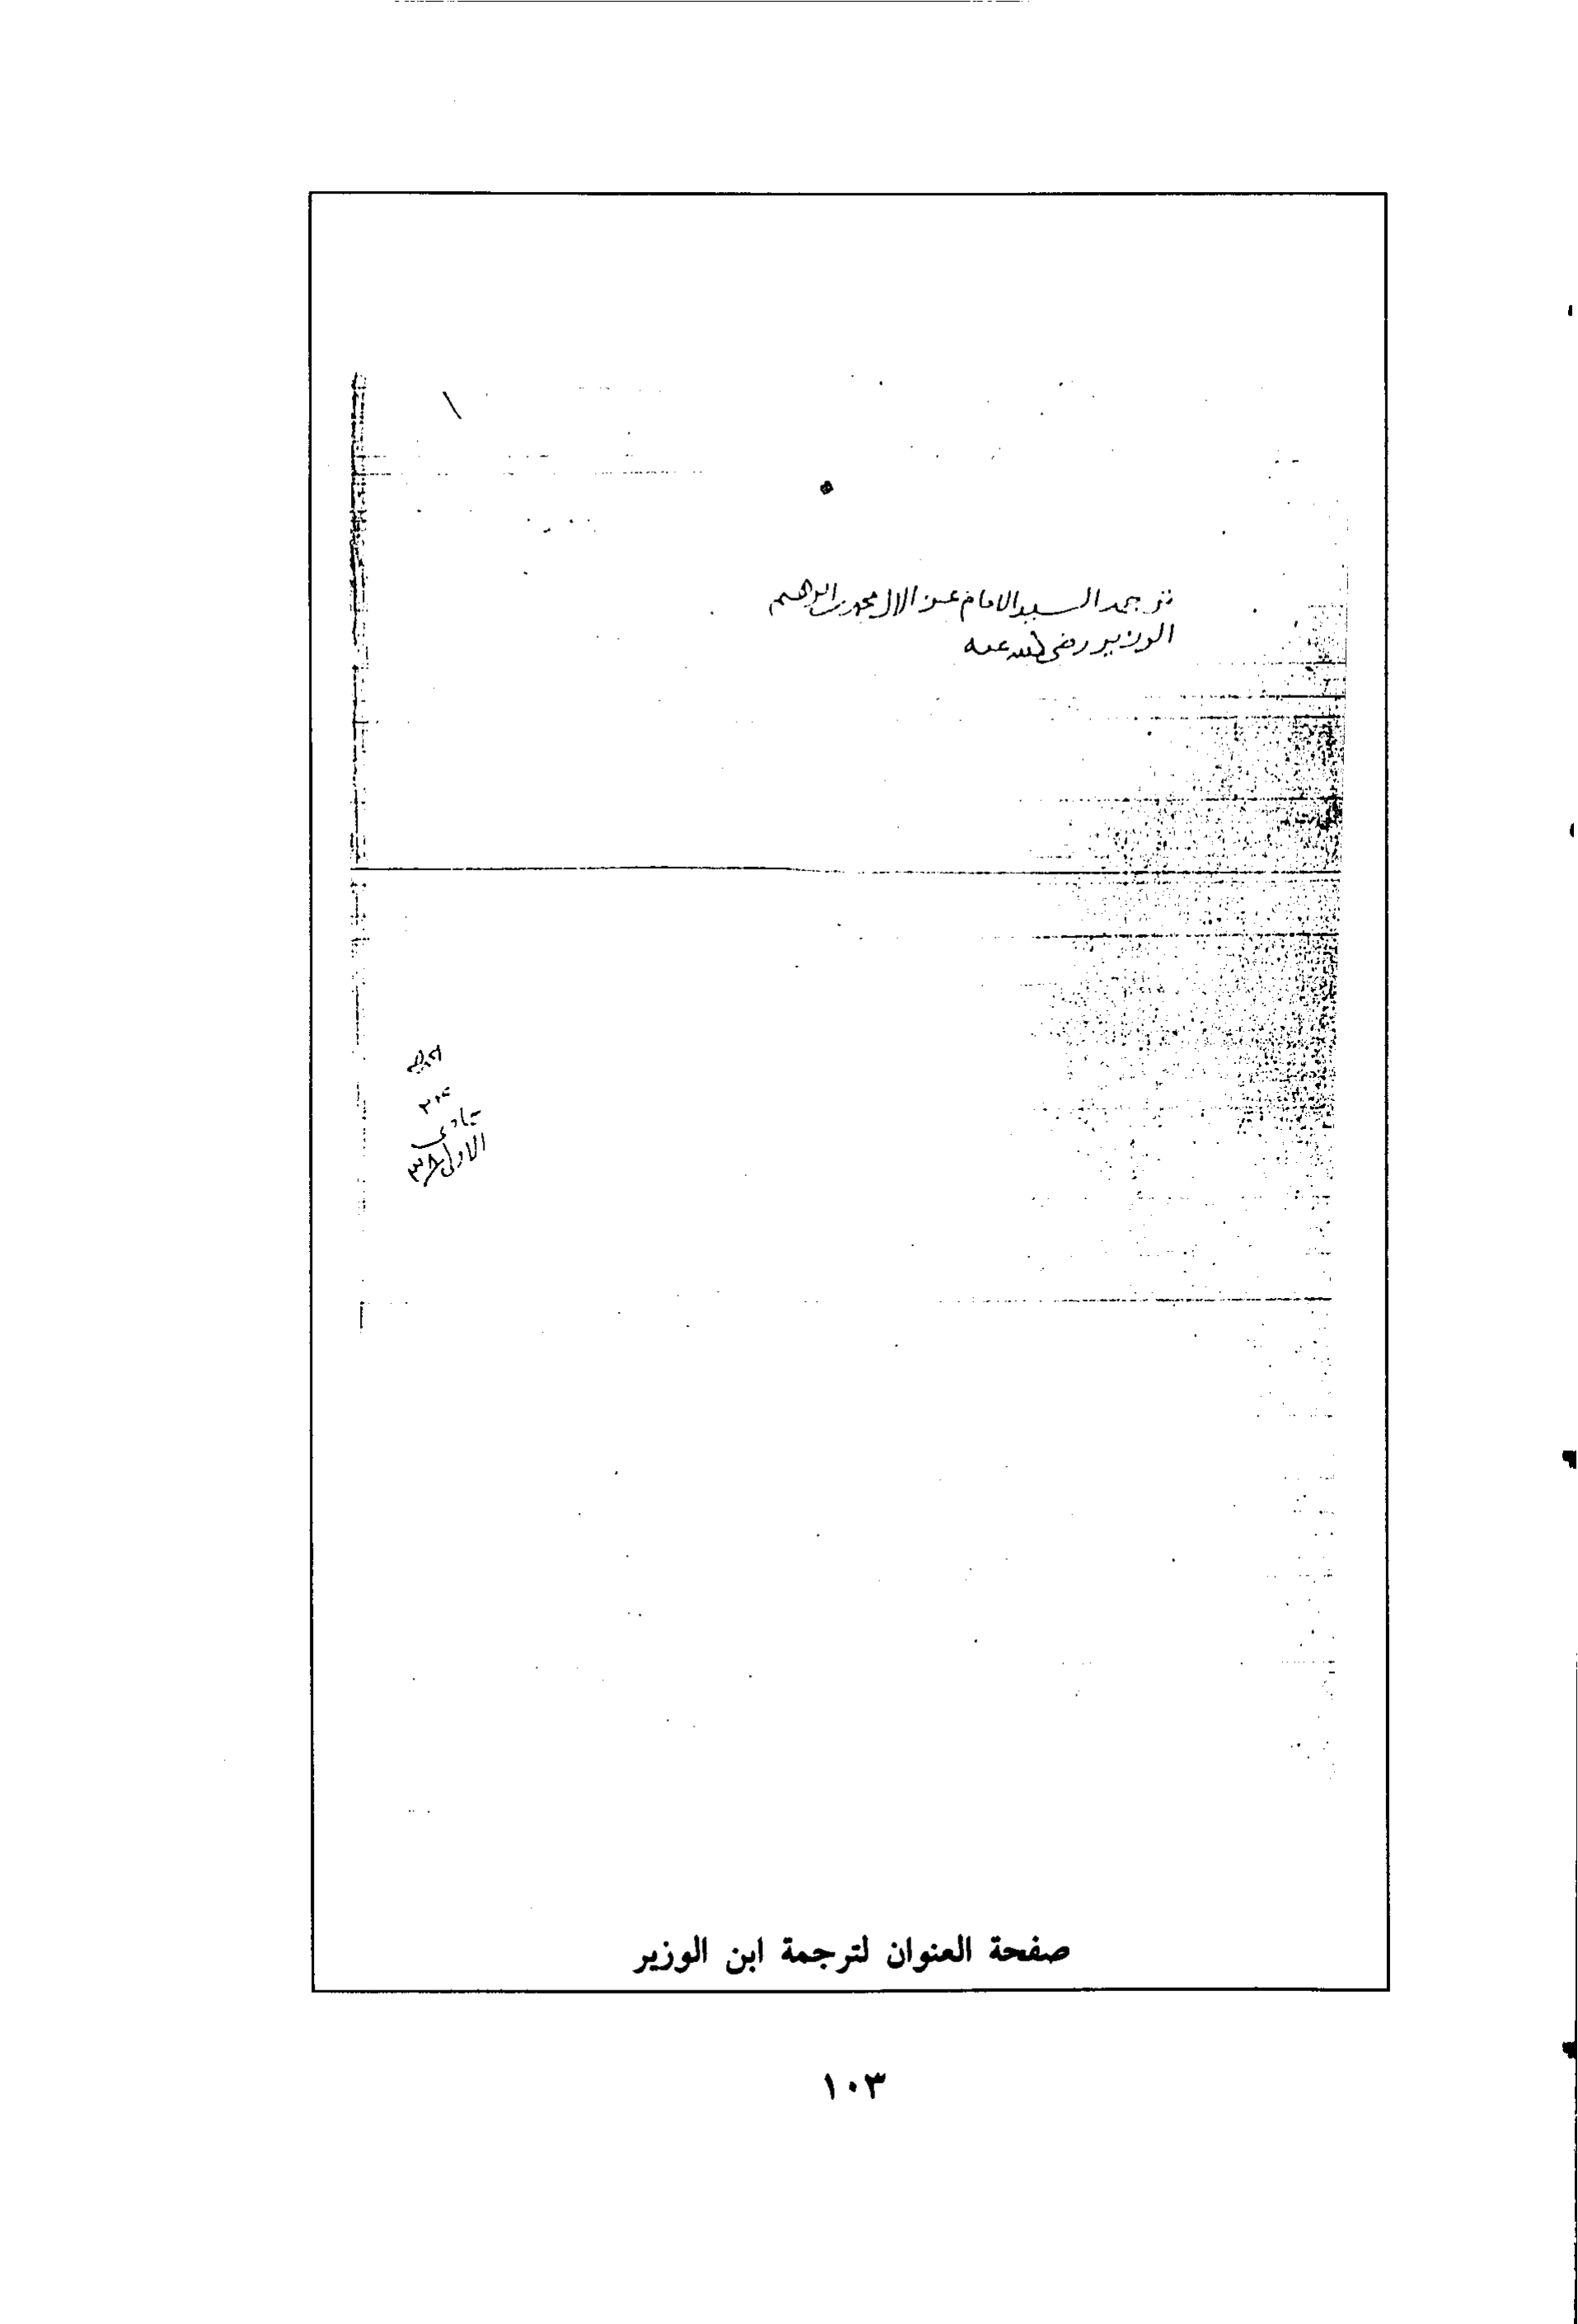 ١
ترجمة السيد الامام عز الال محمد بن ابراهيم
الوزير رضي الله عنه
جمادى
الاولى
صفحة العنوان لترجمة ابن الوزير
١٠٣